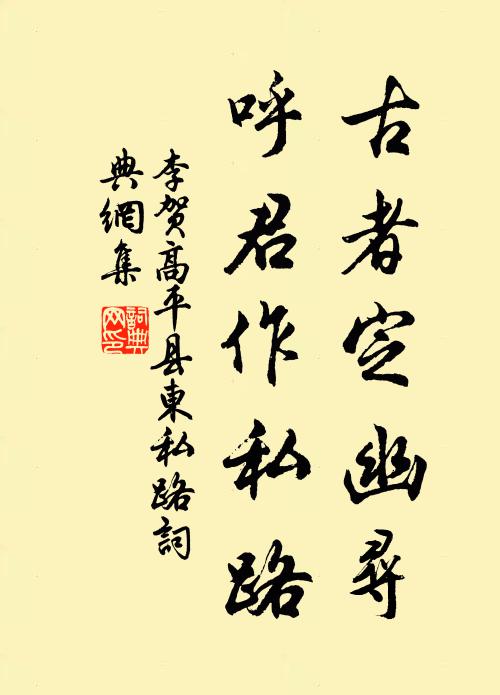 古者定幽尋
呼君作私路
李贺高平县東私路詞
典網集
詞典网印